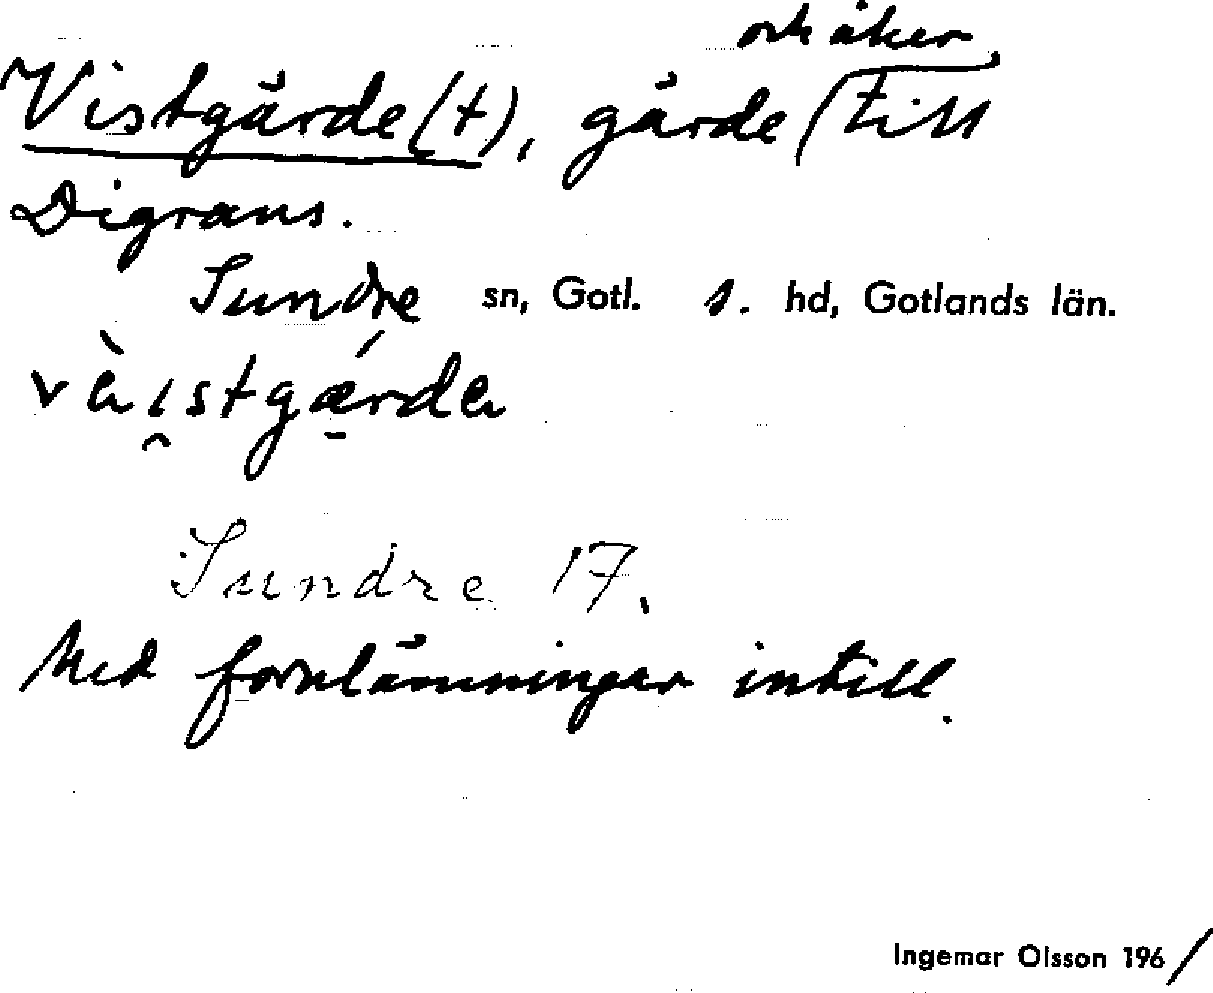 och åker
Vistgärde(t), gärde / till
Digrans.
Sundre sn, Gotl. s. hd, Gotlands län.
vàı̯stgǽrda
Sundre 17.
Med fornlämningar intill.
Ingemar Olsson 1961